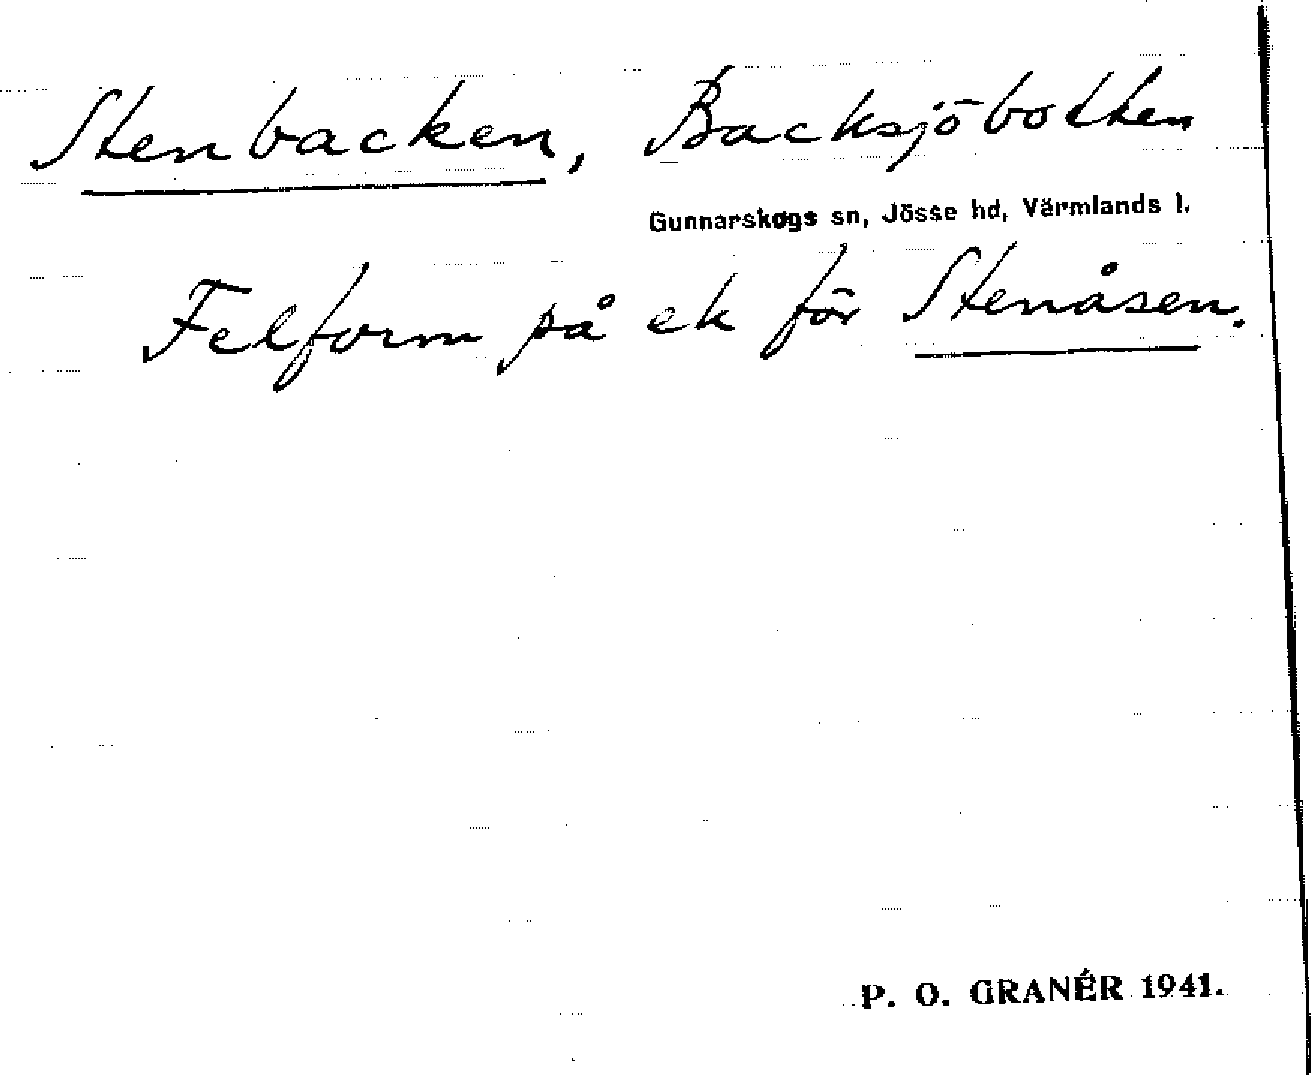 Stenbacken, Backsjöbotten
Gunnarskogs sn, Jösse hd, Värmlands l.
Felform på ek för Stenåsen.
P. O. GRANÉR 1941.